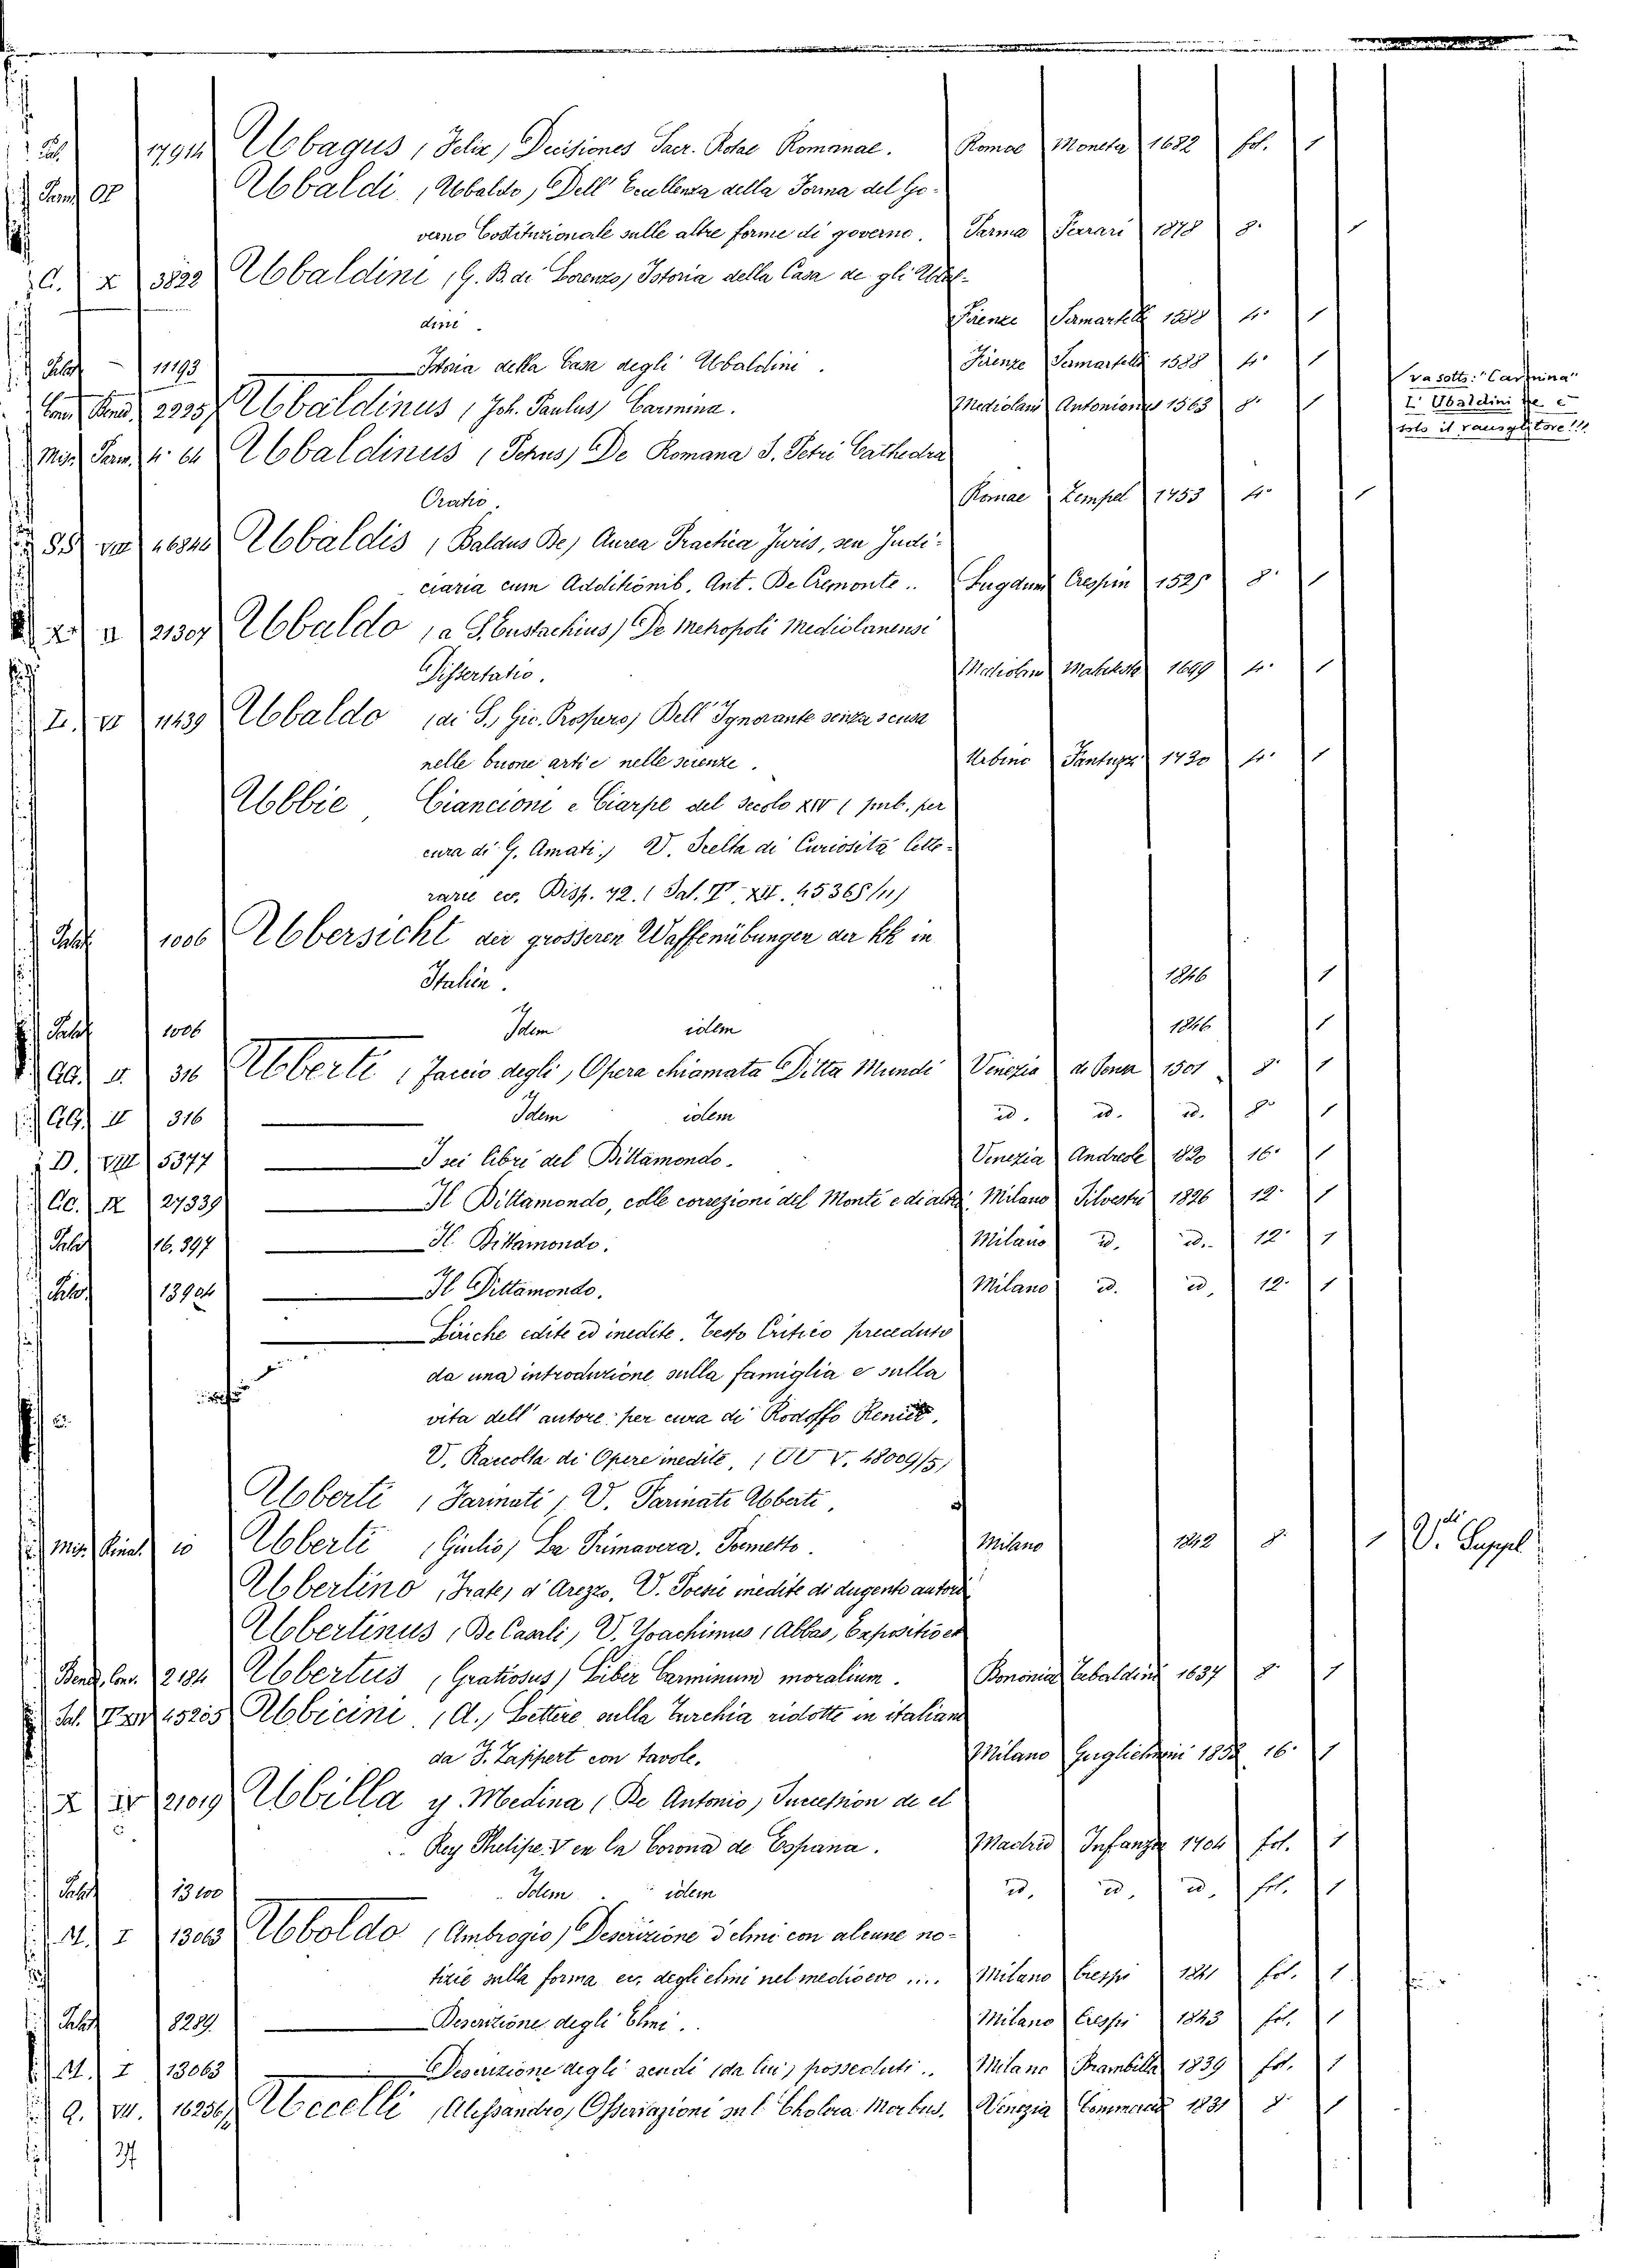 Sal. 17914 Ubagus (Felix) Decisiones Sacr. Rotae Romanae. Romae Moneta 1682 fol. 1
Ubaldi (Ubaldo) Dell' Eccellenza della Forma del Go-
verno Costituzionale sulle altre forme di governo. Parma Ferrari 1878 8° 1
C. X 3822 Ubaldini (G. B. di Lorenzo) Istoria della Casa de gli Ubal-
dini. Firenze Sermartelli 1588 4° 1
11193 Istoria della Casa degli Ubaldini. Firenze Sermartelli 1588 4° 1
22257 Ubaldinus (Joh. Paulus) Carmina. Mediolani Antonianus 1563 8° 1
va sotto: "Carmina"
L'Ubaldini ne è
solo il raccoglitore!!!
Misc. Parm. 4° 64 Ubaldinus (Petrus) De Romana S. Petri Cathedra
Oratio. Romae Zempel 1753 4° 1
46846 Ubaldis (Baldus De) Aurea Practica Juris, seu Judi-
ciaria cum Additionib. Ant. De Cremonte.. Lugduni Crespin 1525 8° 1
21307 Ubaldo (a S. Eustachius) De Metropoli Mediolanensi
Dissertatio. 1699 4° 1
11439 Ubaldo (di S., Gio. Prospero) Dell' Ignorante senza scusa
nelle buone arti e nelle scienze. Urbino Fantuzzi 1730 4° 1
Ubbie, Ciancioni e Ciarpe del secolo XIV (pub. per
cura di G. Amati.) V. Scelta di Curiosità lette-
rarie ec. Disp. 72. (Sal. V-XII. 45365/41)
1006 Ubersicht der grösseren Waffenübungen der kk in
Italien. 1846 1
1006 Idem idem 1846 1
316 Uberti (Faccio degli) Opera chiamata Ditta Mundi Venezia de Penna 1501 8° 1
GG. II 316 Idem idem id. id. id. 8° 1
D. VIII 5377 I sei libri del Dittamondo. Venezia Andreola 1820 16° 1
CC. IX 27339 Il Dittamondo, colle correzioni del Monti e di altri. Milano Silvestri 1826 12° 1
16.397 Il Dittamondo. Milano id. id. 12° 1
13904 Il Dittamondo. Milano id. id. 12° 1
Liriche edite ed inedite. Testo Critico preceduto
da una introduzione sulla famiglia e sulla
vita dell' autore per cura di Rodolfo Renier.
V. Raccolta di Opere inedite, V. 48009/5)
Uberti (Farinati) V. Farinata Uberti.
Misc. 10 Uberti (Giulio) La Primavera. Poemetto. Milano 1842 8° 1 V. Suppl.
Ubertino (Frate) d'Arezzo. V. Poesie inedite di dugento autori
Ubertinus (De Casali) V. Yoachimus (Abbas) Expositio et
2184 Ubertus (Gratiosus) Liber Carminum moralium. Bononiae Tebaldini 1637 8° 1
Sal. 45205 Ubicini (A.) Lettere sulla Turchia ridotte in italiano
da F. Zappert con tavole. Milano Guglielmini 1852 16° 1
X IV 21019 Ubilla y Medina (De Antonio) Sucession de el
Rey Phelipe V en la Corona de Espana. Madrid Infanzon 1704 fol. 1
13100 Idem idem id. id. id. fol. 1
M. I 13063 Uboldo (Ambrogio) Descrizione d'elmi con alcune no-
tizie sulla forma ec. degli elmi nel medioevo.... Milano Crespi 1841 fol. 1
8289 Descrizione degli Elmi.. Milano Crespi 1843 fol. 1
M. I 13063 Descrizione degli scudi (da lui) posseduti.. Milano Brambilla 1839 fol. 1
Q. VII. Uccelli (Alessandro) Osservazioni sul Cholera Morbus. Venezia Commercio 1831 8° 1
37